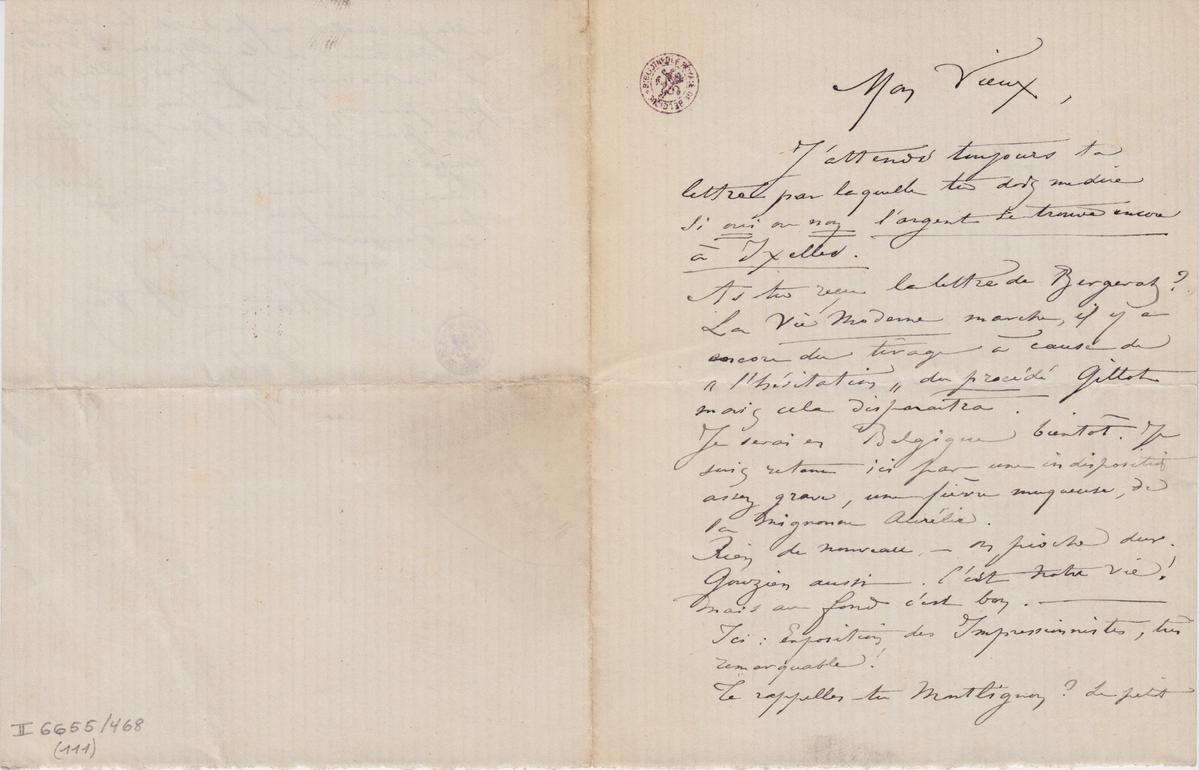 Mon Vieux,
J'attends toujours ta
lettre par laquelle tu dois me dire
si oui ou non l'argent se trouve encore
à Ixelles.
As tu reçu la lettre de Bergerat ?
La Vie Moderne marche, il y a
encore du tirage à cause de
« l'hésitation » du procédé Gillot
mais cela disparaitra.
Je serai en Belgique bientôt. Je
suis retenu ici par une indisposition
assez grave, une fièvre muqueuse, de
la mignonne Aurélie.
Rien de nouveau – on pioche dur.
Gouzien aussi. C'est notre vie !
mais au fond c'est bon. —
Ici : Exposition des Impressionnistes, très
remarquable !
Te rappelles tu Montlignon ? Le petit
BIBLIOTHÈQUE ROYALE DE BELGIQUE
II 6655/468
(111)